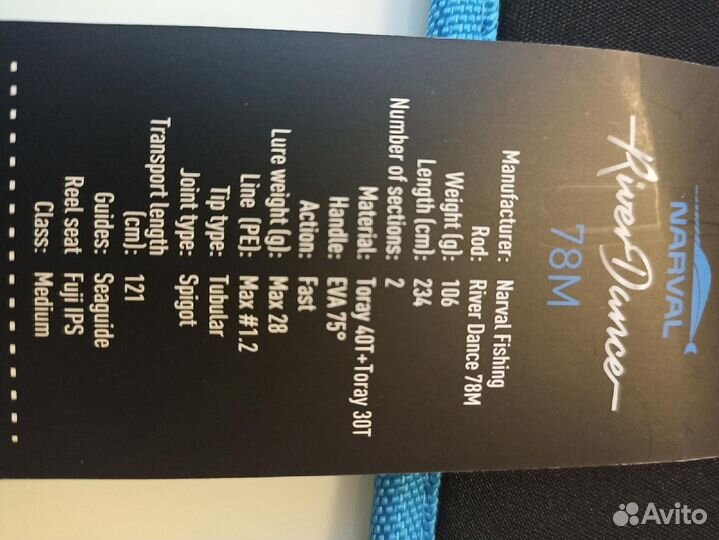 NARVAL
River Dance
78M
Manufacturer: Narval Fishing
Rod: River Dance 78M
Weight (g): 106
Length (cm): 234
Number of sections: 2
Material: Toray 40T+Toray 30T
Handle: EVA 75°
Action: Fast
Lure weight (g): Max 28
Line (PE): Max #1.2
Tip type: Tubular
Joint type: Spigot
Transport length
(cm): 121
Guides: Seaguide
Reel seat Fuji IPS
Class: Medium
Avito